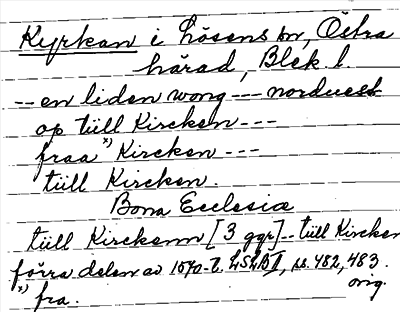 Kyrkan i Lösens sn, Östra
härad, Blek l.
-- en liden wong --- norduest
op tüll Kircken ---
fraa x) Kircken ---
tüll Kircken.
Bona Ecclesiæ
tüll Kirckenn [3 ggr] -- tüll Kircken
förra delen av 1570-t. LSLB I, ss. 482, 483.
x) fra. orig.